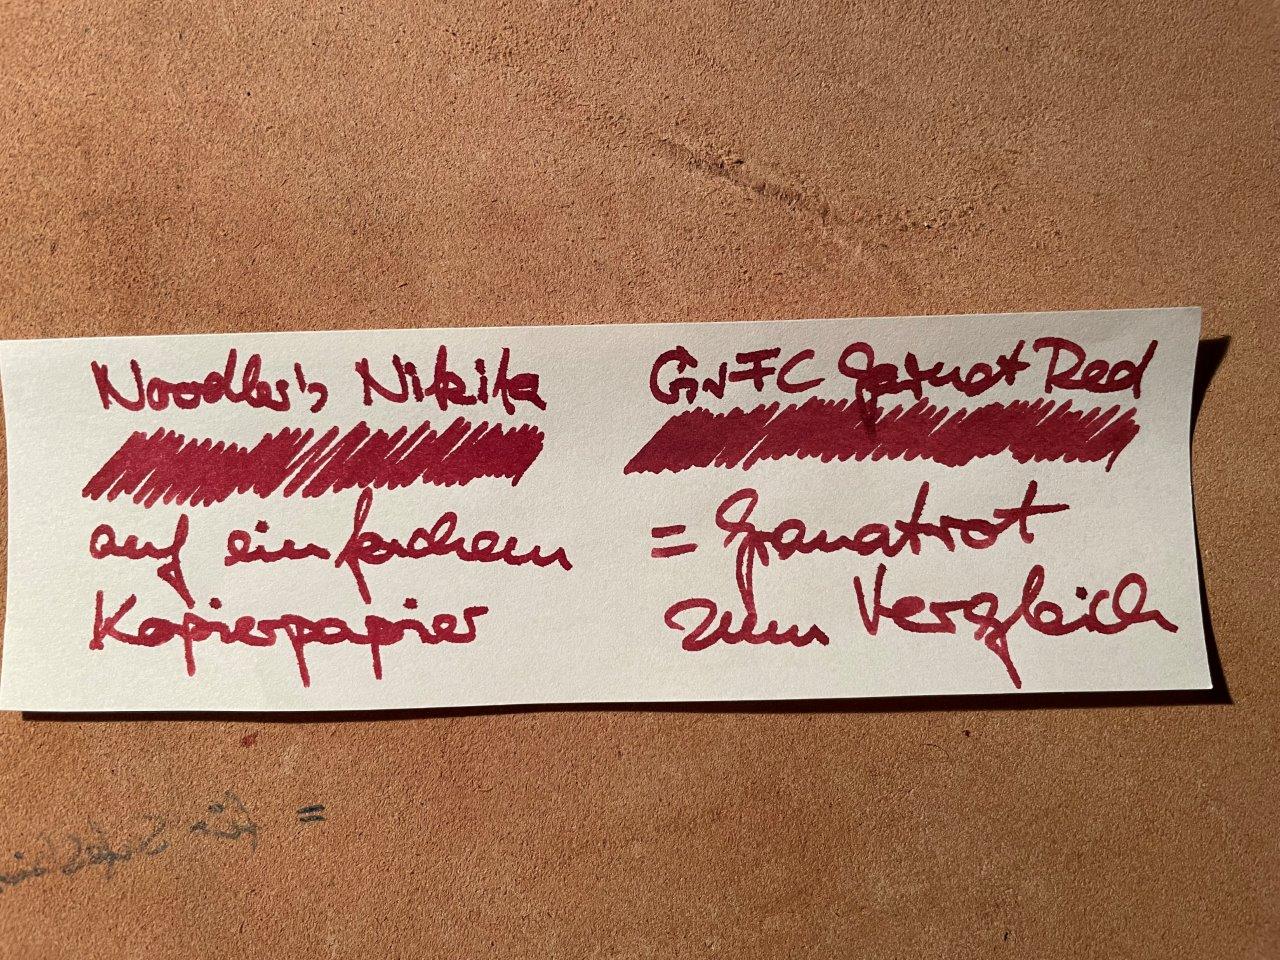 Noodler's Nikita
auf einfachem
Kopierpapier
GvFC Garnet Red
= Granatrot
zum Vergleich
=